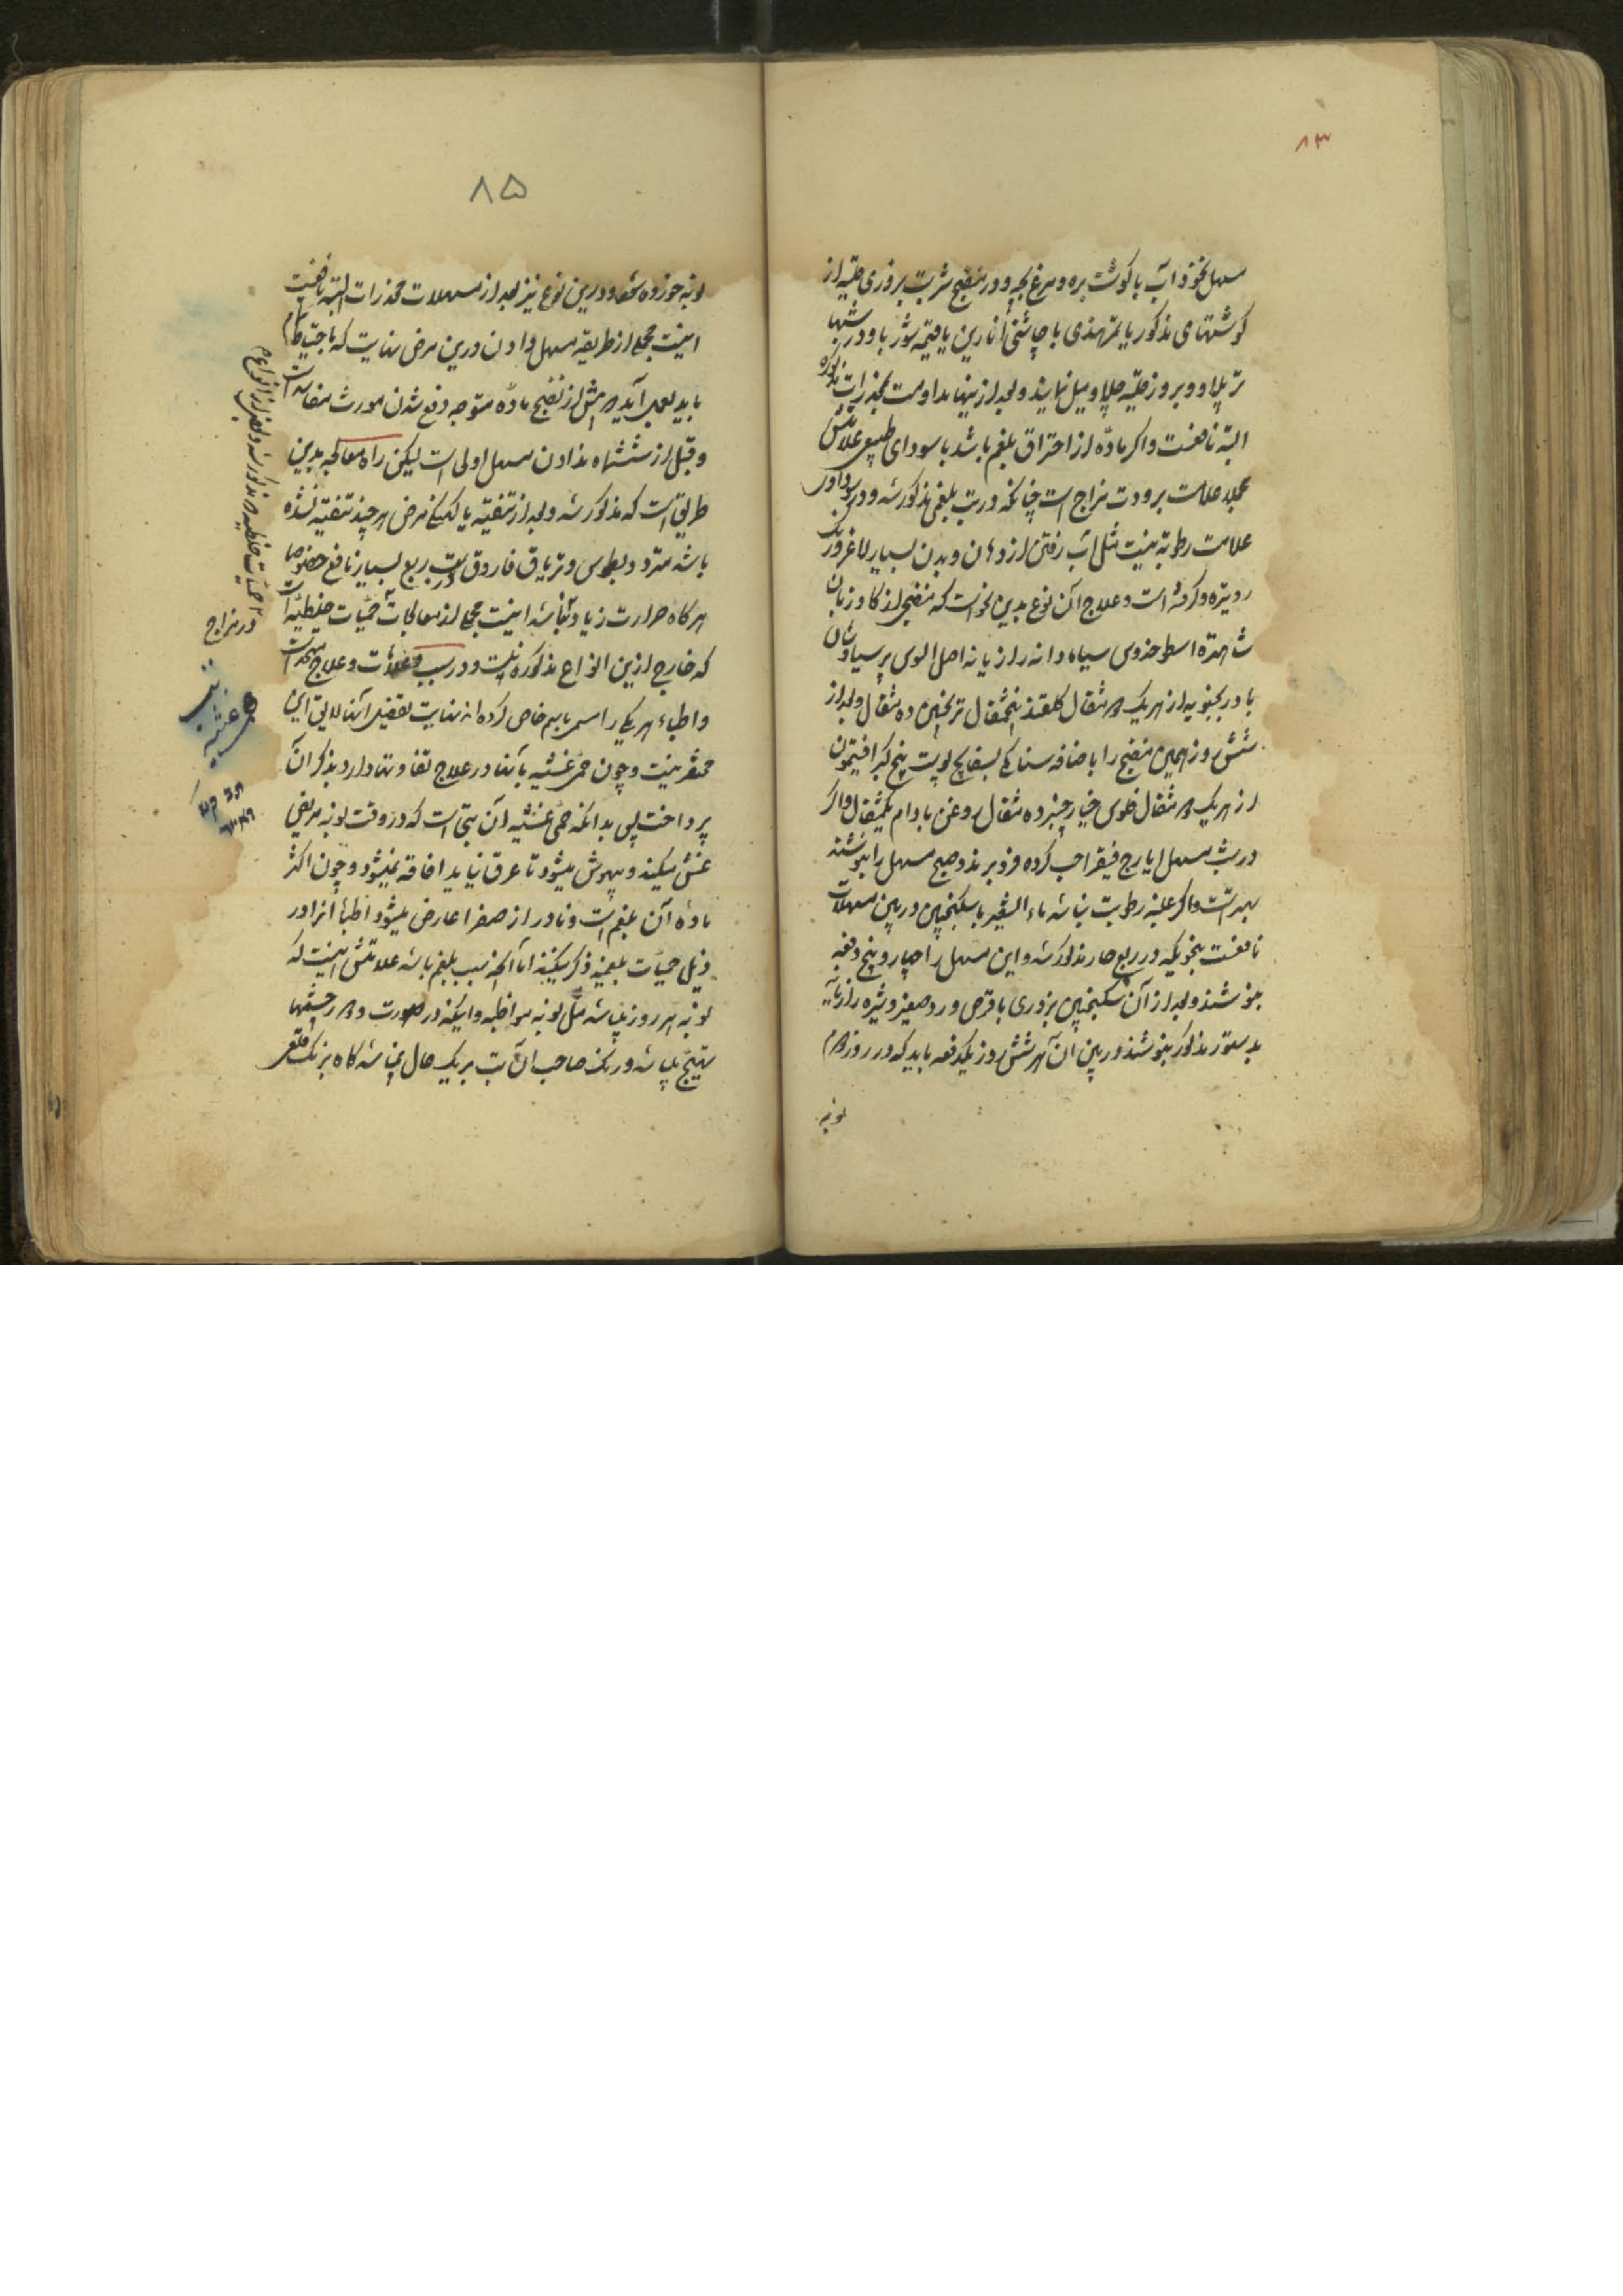 ۸۳
مسهل نخود آب با گوشت بره و مرغ بچه و در منضج شربت بزوری قلیه از
گوشتهای مذکور یا تمرهندی با چاشنی انارین یا قیمه شوربا و در شبها
تر پلاو و بروز قلیه چلاو میل نمایند و بعد از اینها مداومت مخدرات مذکوره
البته نافعست و اگر ماده از احتراق بلغم باشد یا سودای طبیعی علامتش
مجملا علامت برودت مزاج است چنانکه در تب بلغمی مذکور شد و در سوداوی
علامت رطوبة نیست مثل آب رفتن از دهان و بدن بسیار لاغر و رنگ
رو تیره و کرفته است و علاج آن نوع بدین نحو است که منضجی از کاو زبان
شاهتره اسطوخدوس سیاه دانه رازیانه اصل السوس پرسیاوشان
بادرنجبویه از هریک مثقال گلقند پنجمثقال ترنجبین ده مثقال و بعد از
شش روز همین منضج را با اضافه سناء مکی بسفایج پوست بیخ کبر افتیمون
از هریک مثقال فلوس خیارچنبر ده مثقال روغن بادام یکمثقال و اگر
در شب مسهل ایارج فیقرا حب کرده فرو برند و صبح مسهل را بنوشند
بهتر است و اگر غلبه رطوبت نباشد ماء الشعیر با سکنجبین در بین مسهلات
نافعست بنحویکه در ربع حار مذکور شد و این مسهل را چهار و پنج دفعه
بنوشند و بعد از آن سکنجبین بزوری با قرص ورد صغیر و شیره رازیانه
بدستور مذکور بنوشند و در بین آن هر شش روز یکدفعه باید که در روز
نوبه
۸۵
نوبه خورده شود و درین نوع نیز بعد از مسهلات مخدرات البته نافعست
اینست مجملی از طریقه مسهل دادن درین مرض نهایت که باحتیاط تمام
باید بعمل آید پیش از نضج ماده متوجه دفع شدن مورث مفاسد است
و قبل از ششماه ندادن مسهل اولی است لیکن راه معالجه بدین
طریق است که مذکور شد و بعد از تنقیه یا لکه مرض هر چند تنقیه نشده
باشد مترودیطوس و تریاق فاروق در تب ربع بسیار نافع خصوصا
هرگاه حرارت زیاد نباشد اینست مجملی از معالجات حمیات خلطیه است
که خارج ازین انواع مذکوره نیست و در سبب و علامات و علاج متحد است
و اطباء هر یکی را اسمی باسم خاص کرده اند نهایت تفصیل آنها لایق این
مختصر نیست و چون حمی غشیه با آنها در علاج تفاوتها دارد بذکر آن
پرداخت پس بدانکه حمی غشیه آن تبی است که در وقت نوبه مریض
غشی میکند و بیهوش میشود تا عرق نیاید افاقه نمیشود و چون اکثر
ماده آن بلغم است و نادر از صفرا عارض میشود اطبا انرا در
ذیل حمیات بلغمیه ذکر میکنند اما آنچه بسبب بلغم باشد علامتش اینست که
نوبه هر روز میباشد مثل نوبه مواظبه و اینکه در صورت و در چشمها
تهیج میباشد و رنگ صاحب آن تب بریک حال نمیباشد گاه برنگ
در مزاج
تب
غشیه